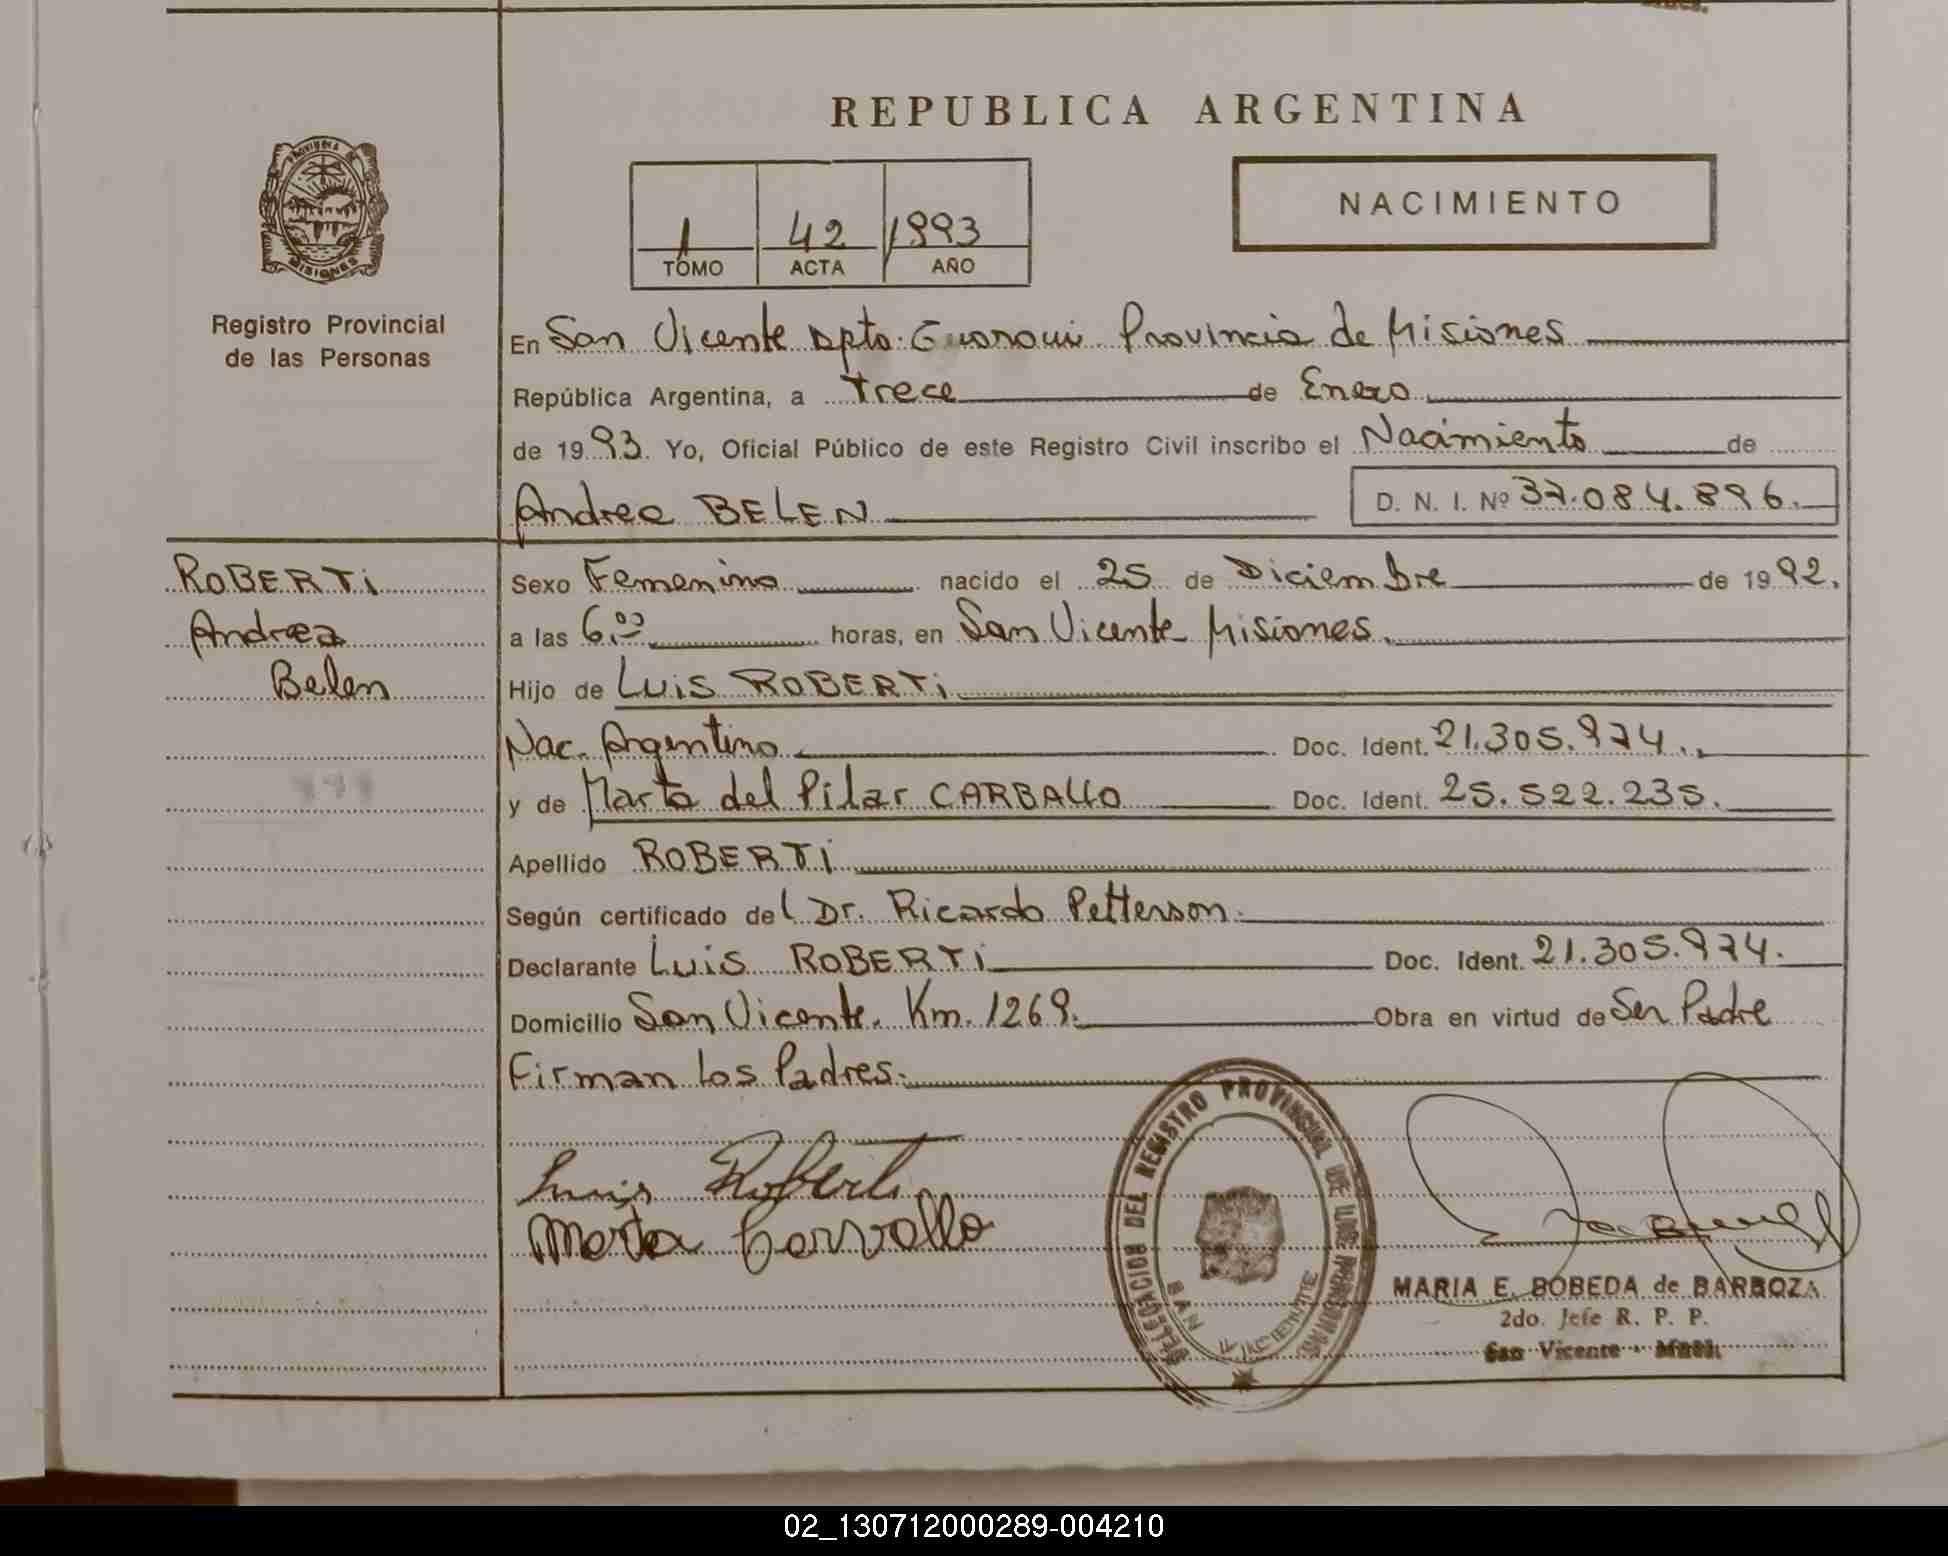 REPUBLICA ARGENTINA
PROVINCIA DE
MISIONES
Registro Provincial
de las Personas
1 42 1993
TOMO ACTA AÑO
NACIMIENTO
En San Vicente Dpto. Guarani Provincia de Misiones
República Argentina, a trece de Enero
de 1993. Yo, Oficial Público de este Registro Civil inscribo el Nacimiento de
Andrea BELEN D. N. I. Nº 37.084.896.
ROBERTi
Andrea
Belen
Sexo Femenino nacido el 25 de Diciembre de 1992.
a las 6.00 horas, en San Vicente Misiones.
Hijo de Luis ROBERTi
Nac. Argentino Doc. Ident. 21.305.974.
y de Marta del Pilar CARBALLO Doc. Ident. 25.522.235.
Apellido ROBERTi
Según certificado del Dr. Ricardo Petterson.
Declarante Luis ROBERTi Doc. Ident. 21.305.974.
Domicilio San Vicente. Km. 1269. Obra en virtud de Ser Padre
Firman los Padres.
Luis Roberti
Marta Carvallo
DELEGACION DEL REGISTRO PROVINCIAL DE LAS PERSONAS
SAN VICENTE
MARIA E. BOBEDA de BARBOZA
2do. Jefe R. P. P.
San Vicente - Mnes.
02_130712000289-004210